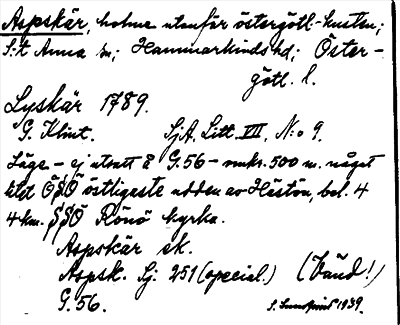 Aspskär, holme utanför östergötl-kusten;
S:t Anna sn; Hammarkinds hd; Öster-
götl. l.
Lyskär 1789.
G. Klint. SjA. Litt. VII, N:o 9.
Läge – ej utsatt å G.56 – omkr. 500 m. något
litet ÖSÖ östligaste udden av Hästön, bel. 4
4 km. SSÖ Rönö kyrka.
Aspskär sk.
Aspsk. Sj: 251 (special.) (Vänd!)
G.56. S. Sundqvist 1939.